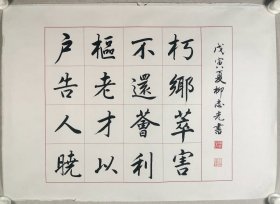 户樞不朽
告老還鄉
人才薈萃
曉以利害
戊寅夏柳光書